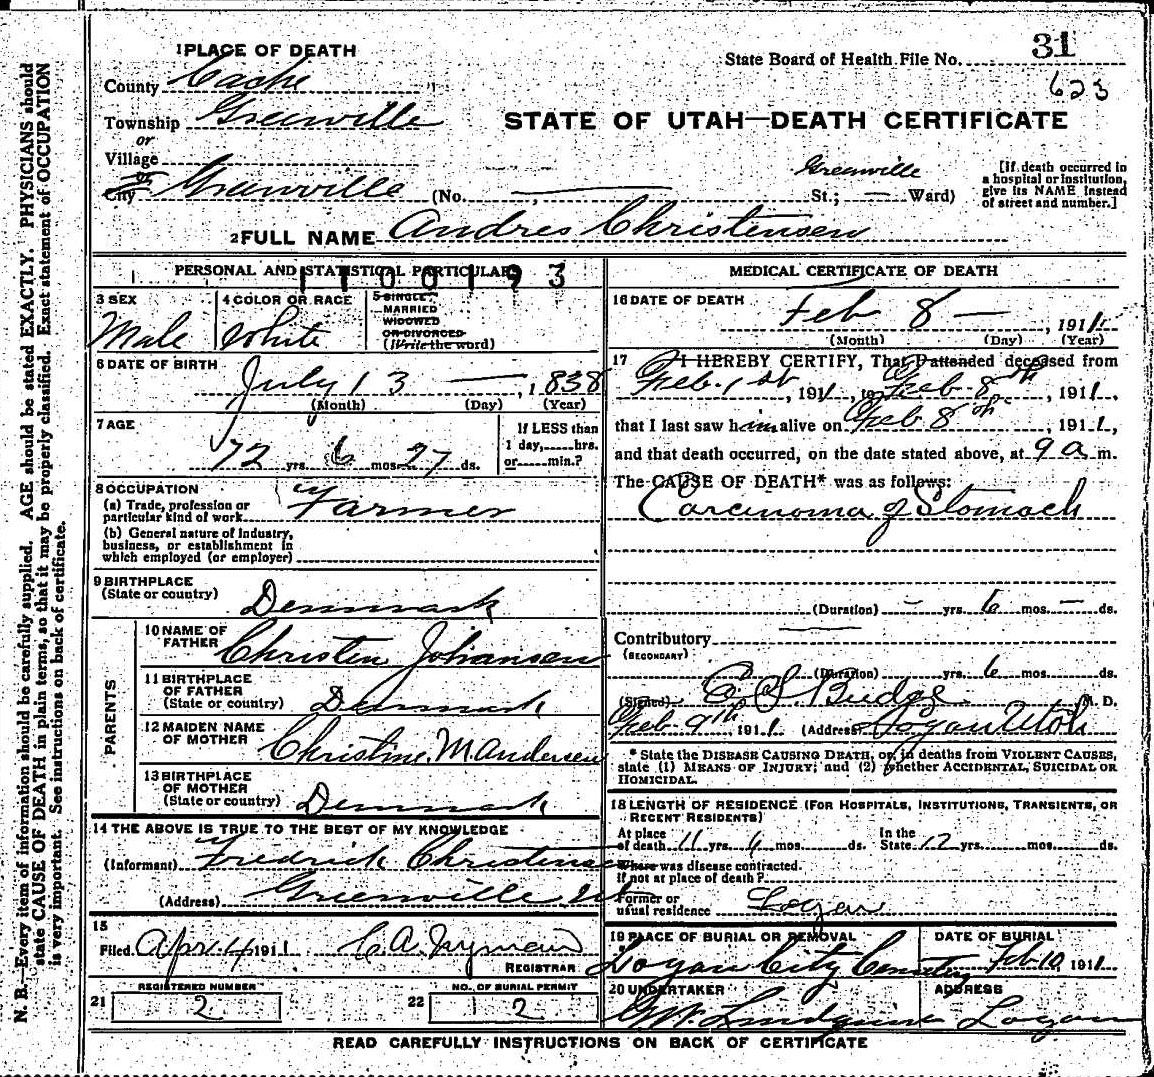 N. B.—Every item of information should be carefully supplied. AGE should be stated EXACTLY. PHYSICIANS should
state CAUSE OF DEATH in plain terms, so that it may be properly classified. Exact statement of OCCUPATION
is very important. See instructions on back of certificate.
1 PLACE OF DEATH
County Cache
Township Greenville
or
Village
or
City Greenville (No. , Greenville St.; — Ward)
State Board of Health File No. 31
623
STATE OF UTAH—DEATH CERTIFICATE
[If death occurred in
a hospital or institution,
give its NAME instead
of street and number.]
2 FULL NAME Andres Christensen
PERSONAL AND STATISTICAL PARTICULARS
1100193
3 SEX
Male
4 COLOR OR RACE
White
5 SINGLE
MARRIED
WIDOWED
OR DIVORCED
(Write the word)
6 DATE OF BIRTH
July 13 — , 1838
(Month) (Day) (Year)
7 AGE
72 yrs. 6 mos. 27 ds.
If LESS than
1 day, hrs.
or min.?
8 OCCUPATION
(a) Trade, profession or
particular kind of work Farmer
(b) General nature of industry,
business, or establishment in
which employed (or employer)
9 BIRTHPLACE
(State or country) Denmark
PARENTS
10 NAME OF
FATHER Christen Johansen
11 BIRTHPLACE
OF FATHER
(State or country) Denmark
12 MAIDEN NAME
OF MOTHER Christine M. Andersen
13 BIRTHPLACE
OF MOTHER
(State or country) Denmark
14 THE ABOVE IS TRUE TO THE BEST OF MY KNOWLEDGE
(Informant) Fredrick Christensen
(Address) Greenville Ut
15
Filed Apr. 4 1911 C. A.
REGISTRAR
21 REGISTERED NUMBER
2
22 NO. OF BURIAL PERMIT
2
MEDICAL CERTIFICATE OF DEATH
16 DATE OF DEATH
Feb 8 — , 1911
(Month) (Day) (Year)
17 I HEREBY CERTIFY, That I attended deceased from
Feb. 1st , 1911, to Feb. 8th , 1911,
that I last saw him alive on Feb 8th , 1911,
and that death occurred, on the date stated above, at 9 a m.
The CAUSE OF DEATH* was as follows:
Carcinoma of Stomach
(Duration) — yrs. 6 mos. — ds.
Contributory
(SECONDARY)
(Duration) yrs. 6 mos. ds.
(Signed) Budge M. D.
Feb. 9th, 1911 (Address) Logan Utah
* State the DISEASE CAUSING DEATH, or, in deaths from VIOLENT CAUSES,
state (1) MEANS OF INJURY; and (2) whether ACCIDENTAL, SUICIDAL OR
HOMICIDAL.
18 LENGTH OF RESIDENCE (FOR HOSPITALS, INSTITUTIONS, TRANSIENTS, OR
RECENT RESIDENTS)
At place
of death 11 yrs. 6 mos. ds.
In the
State 12 yrs. mos. ds.
Where was disease contracted.
If not at place of death?
Former or
usual residence Logan
19 PLACE OF BURIAL OR REMOVAL
Logan City Cemetery
DATE OF BURIAL
Feb 10, 1911
20 UNDERTAKER
ADDRESS
Logan
READ CAREFULLY INSTRUCTIONS ON BACK OF CERTIFICATE